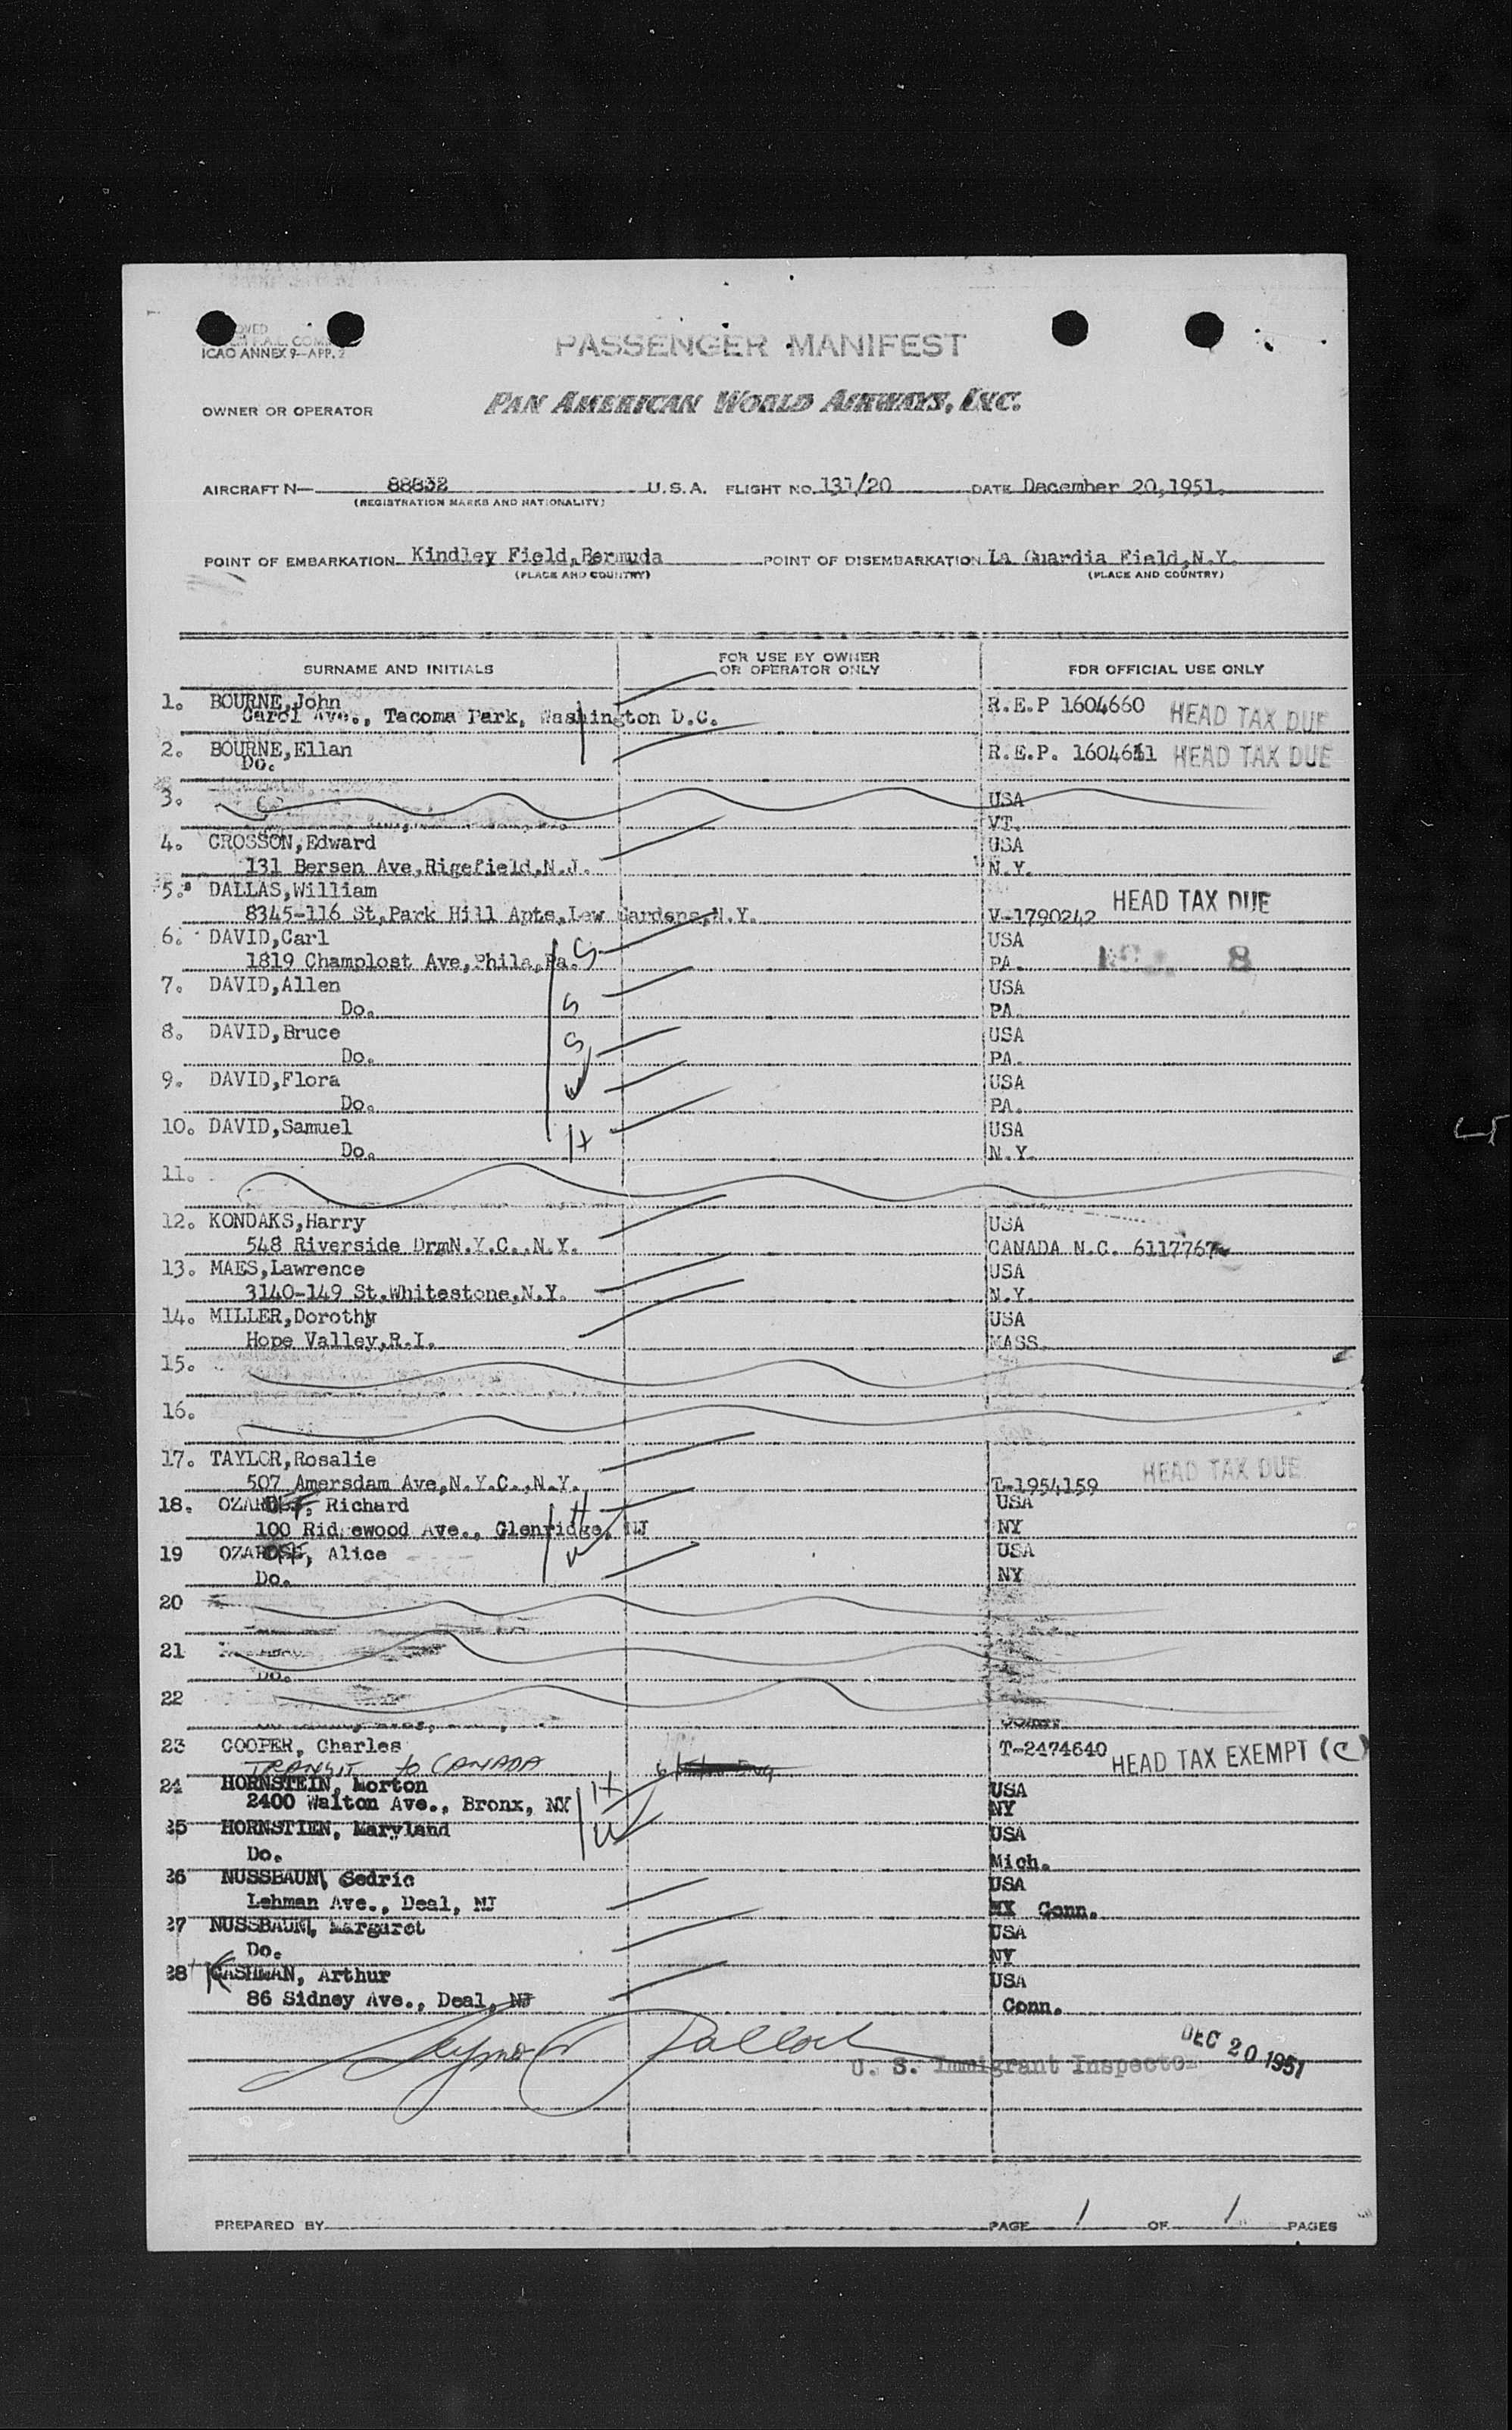 ICAO ANNEX 9-APP. 2
PASSENGER MANIFEST
OWNER OR OPERATOR PAN AMERICAN WORLD AIRWAYS, INC.
AIRCRAFT N- 88832 U.S.A. FLIGHT NO. 131/20 DATE December 20,1951.
(REGISTRATION MARKS AND NATIONALITY)
POINT OF EMBARKATION Kindley Field,Bermuda POINT OF DISEMBARKATION La Guardia Field,N.Y.
(PLACE AND COUNTRY) (PLACE AND COUNTRY)
SURNAME AND INITIALS FOR USE BY OWNER OR OPERATOR ONLY FOR OFFICIAL USE ONLY
1. BOURNE,John R.E.P 1604660 HEAD TAX DUE
Carol Ave., Tacoma Park, Washington D.C.
2. BOURNE,Ellan R.E.P. 1604661 HEAD TAX DUE
Do.
3. USA
VT.
4. CROSSON,Edward USA
131 Bersen Ave,Rigefield,N.J. N.Y.
5. DALLAS,William HEAD TAX DUE
8345-116 St,Park Hill Apts,Lew Gardens,N.Y. V-1790242
6. DAVID,Carl USA
1819 Champlost Ave,Phila,Pa. S PA. 8
7. DAVID,Allen USA
Do. S PA.
8. DAVID,Bruce USA
Do. S PA.
9. DAVID,Flora USA
Do. W PA.
10. DAVID,Samuel USA
Do. H N.Y.
11.
12. KONDAKS,Harry USA
548 Riverside DrmN.Y.C.,N.Y. CANADA N.C. 6117767
13. MAES,Lawrence USA
3140-149 St.Whitestone,N.Y. N.Y.
14. MILLER,Dorothy USA
Hope Valley,R.I. MASS.
15.
16.
17. TAYLOR,Rosalie HEAD TAX DUE
507 Amersdam Ave,N.Y.C.,N.Y. T-1954159
18. Richard USA
100 Ridgewood Ave., Glenridge, NJ H NY
19 Alice USA
Do. W NY
20
21
Do.
22
23 COOPER, Charles T-2474640 HEAD TAX EXEMPT (C)
TRANSIT to CANADA
24 HORNSTEIN, Morton H USA
2400 Walton Ave., Bronx, NY NY
25 HORNSTIEN, Maryland W USA
Do. Mich.
26 NUSSBAUM, Cedric USA
Lehman Ave., Deal, NJ Conn.
27 NUSSBAUM, Margaret USA
Do. NY
28 KASHMAN, Arthur USA
86 Sidney Ave., Deal, NJ Conn.
U. S. Immigrant Inspector DEC 20 1951
PREPARED BY PAGE 1 OF 1 PAGES